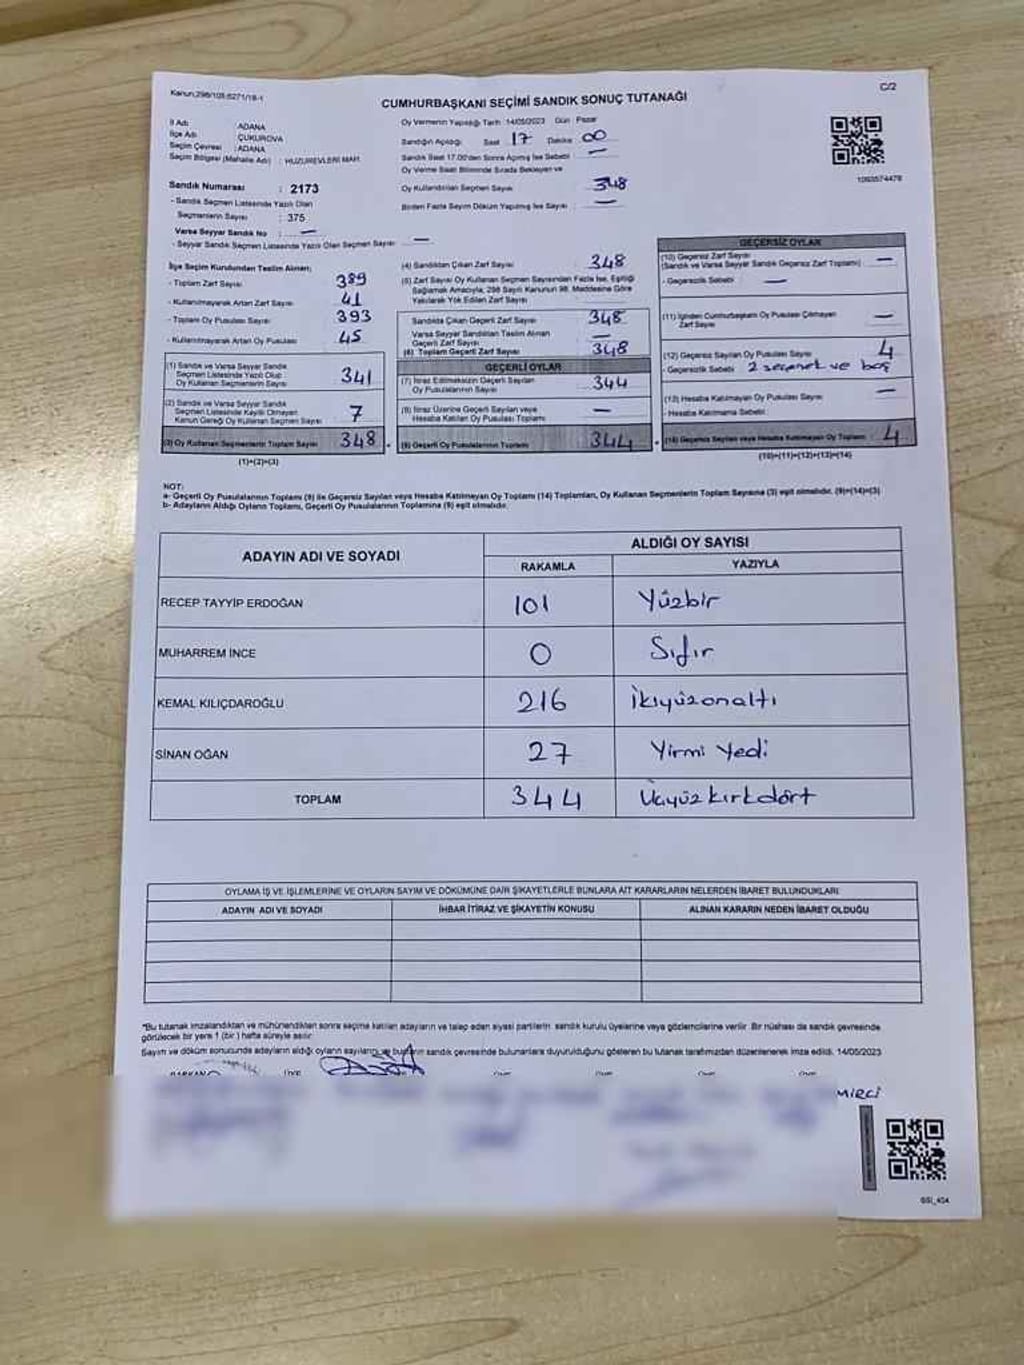 Kanun:298/105;6271/18-1
C/2
CUMHURBAŞKANI SEÇİMİ SANDIK SONUÇ TUTANAĞI
İl Adı : ADANA
İlçe Adı : ÇUKUROVA
Seçim Çevresi : ADANA
Seçim Bölgesi (Mahalle Adı) : HUZUREVLERİ MAH.
Sandık Numarası : 2173
- Sandık Seçmen Listesinde Yazılı Olan
Seçmenlerin Sayısı : 375
Varsa Seyyar Sandık No : —
- Seyyar Sandık Seçmen Listesinde Yazılı Olan Seçmen Sayısı : —
Oy Vermenin Yapıldığı Tarih 14/05/2023 Gün Pazar
Sandığın Açıldığı Saat 17 Dakika 00
Sandık Saat 17.00'den Sonra Açılmış İse Sebebi : —
Oy Verme Saati Bitiminde Sırada Bekleyen ve
Oy Kullandırılan Seçmen Sayısı 348
Birden Fazla Sayım Döküm Yapılmış İse Sayısı : —
1093574478
İlçe Seçim Kurulundan Teslim Alınan;
- Toplam Zarf Sayısı 389
- Kullanılmayarak Artan Zarf Sayısı 41
- Toplam Oy Pusulası Sayısı 393
- Kullanılmayarak Artan Oy Pusulası 45
(1) Sandık ve Varsa Seyyar Sandık
Seçmen Listesinde Yazılı Olup
Oy Kullanan Seçmenlerin Sayısı 341
(2) Sandık ve Varsa Seyyar Sandık
Seçmen Listesinde Kayıtlı Olmayan
Kanun Gereği Oy Kullanan Seçmen Sayısı 7
(3) Oy Kullanan Seçmenlerin Toplam Sayısı 348
(1)+(2)=(3)
(4) Sandıktan Çıkan Zarf Sayısı 348
(5) Zarf Sayısı Oy Kullanan Seçmen Sayısından Fazla İse, Eşitliği
Sağlamak Amacıyla, 298 Sayılı Kanunun 98. Maddesine Göre
Yakılarak Yok Edilen Zarf Sayısı
Sandıkta Çıkan Geçerli Zarf Sayısı 348
Varsa Seyyar Sandıktan Teslim Alınan
Geçerli Zarf Sayısı —
(6) Toplam Geçerli Zarf Sayısı 348
GEÇERLİ OYLAR
(7) İtiraz Edilmeksizin Geçerli Sayılan
Oy Pusulalarının Sayısı 344
(8) İtiraz Üzerine Geçerli Sayılan veya
Hesaba Katılan Oy Pusulası Toplamı —
(9) Geçerli Oy Pusulalarının Toplamı 344
GEÇERSİZ OYLAR
(10) Geçersiz Zarf Sayısı
(Sandık ve Varsa Seyyar Sandık Geçersiz Zarf Toplamı) —
- Geçersizlik Sebebi : —
(11) İçinden Cumhurbaşkanı Oy Pusulası Çıkmayan
Zarf Sayısı —
(12) Geçersiz Sayılan Oy Pusulası Sayısı 4
- Geçersizlik Sebebi 2 seçenek ve boş
(13) Hesaba Katılmayan Oy Pusulası Sayısı —
- Hesaba Katılmama Sebebi
(14) Geçersiz Sayılan veya Hesaba Katılmayan Oy Toplamı 4
(10)+(11)+(12)+(13)=(14)
NOT:
a- Geçerli Oy Pusulalarının Toplamı (9) ile Geçersiz Sayılan veya Hesaba Katılmayan Oy Toplamı (14) Toplamları, Oy Kullanan Seçmenlerin Toplam Sayısına (3) eşit olmalıdır. (9)+(14)=(3)
b- Adayların Aldığı Oyların Toplamı, Geçerli Oy Pusulalarının Toplamına (9) eşit olmalıdır.
ADAYIN ADI VE SOYADI
ALDIĞI OY SAYISI
RAKAMLA YAZIYLA
RECEP TAYYİP ERDOĞAN 101 Yüzbir
MUHARREM İNCE 0 Sıfır
KEMAL KILIÇDAROĞLU 216 İkiyüzonaltı
SİNAN OĞAN 27 Yirmi Yedi
TOPLAM 344 Üçyüzkırkdört
OYLAMA İŞ VE İŞLEMLERİNE VE OYLARIN SAYIM VE DÖKÜMÜNE DAİR ŞİKAYETLERLE BUNLARA AİT KARARLARIN NELERDEN İBARET BULUNDUKLARI
ADAYIN ADI VE SOYADI İHBAR İTİRAZ VE ŞİKAYETİN KONUSU ALINAN KARARIN NEDEN İBARET OLDUĞU
*Bu tutanak imzalandıktan ve mühürlendikten sonra seçime katılan adayların ve talep eden siyasi partilerin sandık kurulu üyelerine veya gözlemcilerine verilir. Bir nüshası da sandık çevresinde
görülecek bir yere 1 (bir) hafta süreyle asılır.
Sayım ve döküm sonucunda adayların aldığı oyların sayıları ve bunların sandık çevresinde bulunanlara duyurulduğunu gösteren bu tutanak tarafımızdan düzenlenerek imza edildi. 14/05/2023
BAŞKAN
MİRCİ